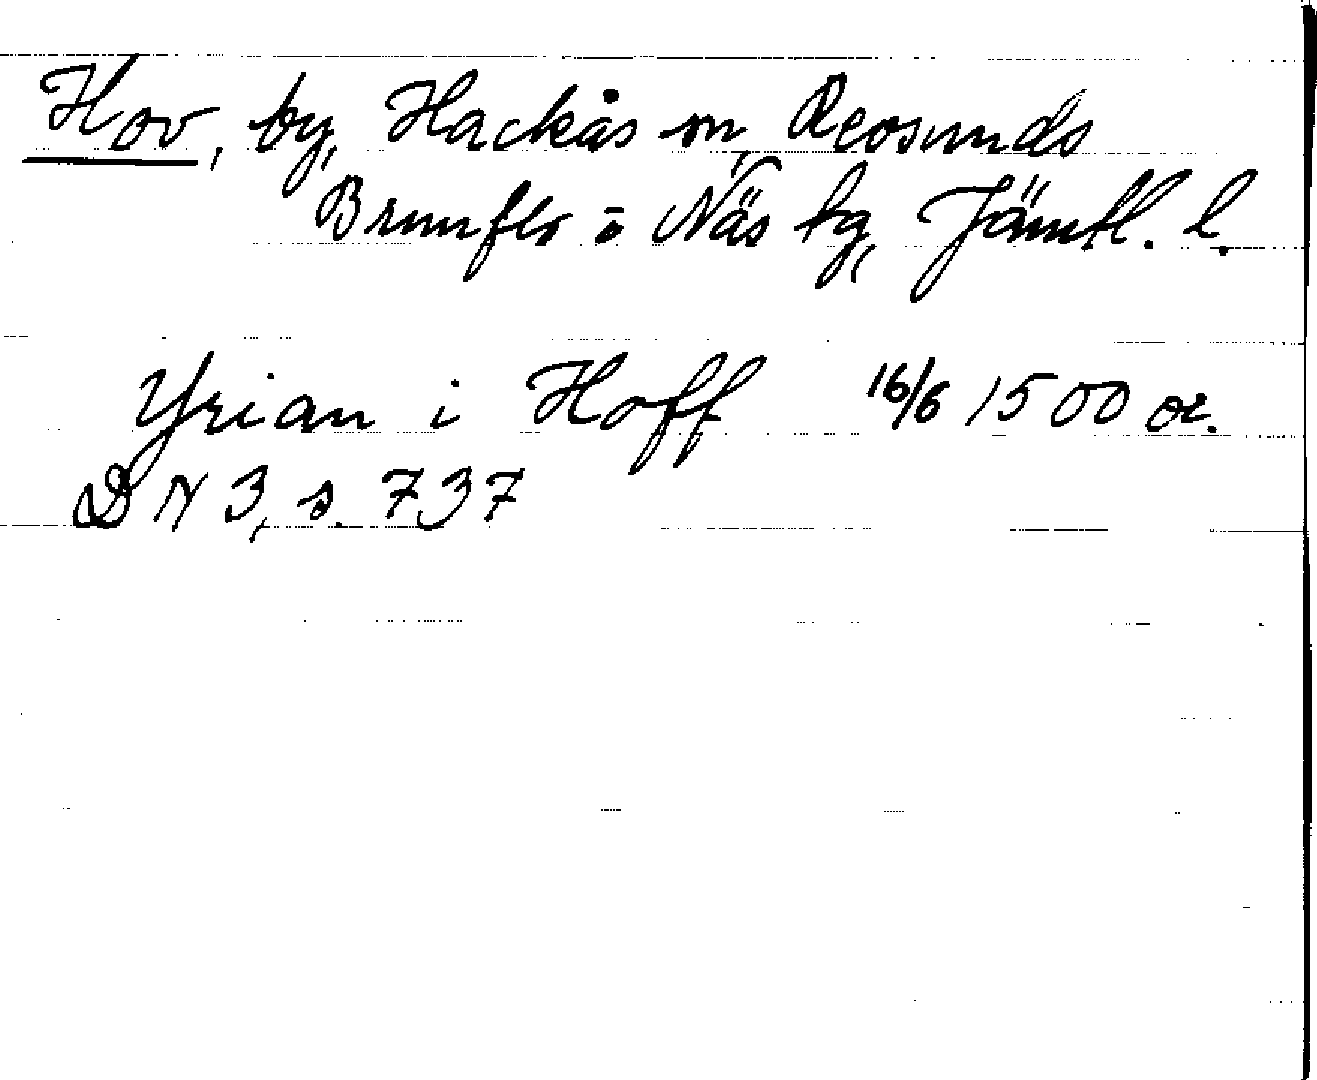 Hov, by, Hackås sn, Revsunds
Brunflo o Näs tg, Jämtl. l.
Yrian i Hoff 16/6 1500 or.
DN 3, s. 737